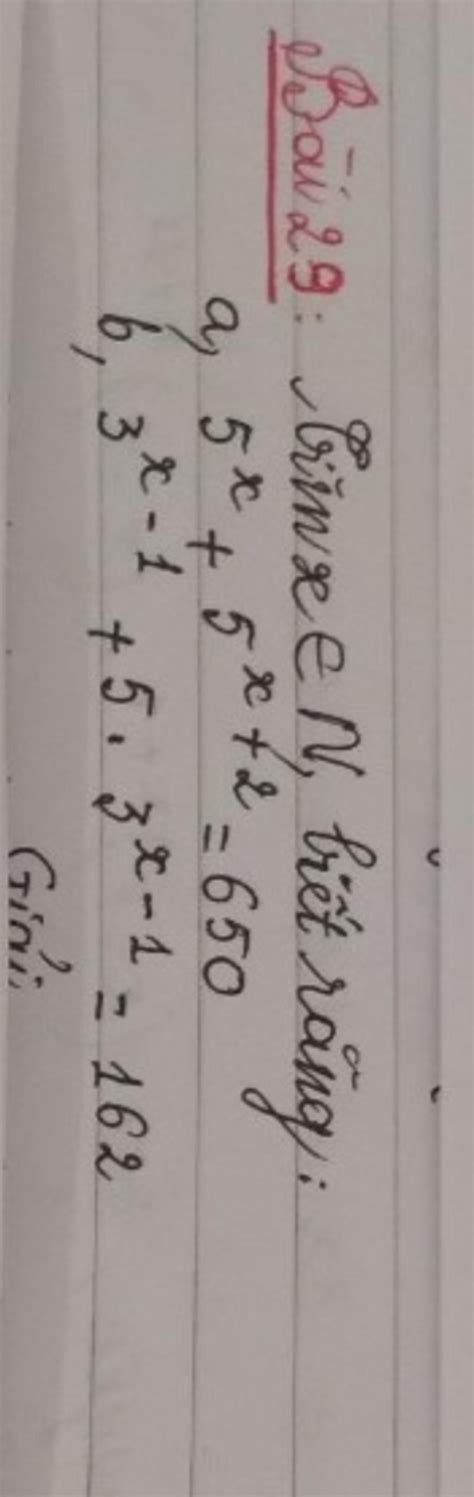 Bài 29: Tìm x ∈ N, biết rằng:
a, 5^x + 5^{x+2} = 650
b, 3^{x-1} + 5 . 3^{x-1} = 162
Giải: